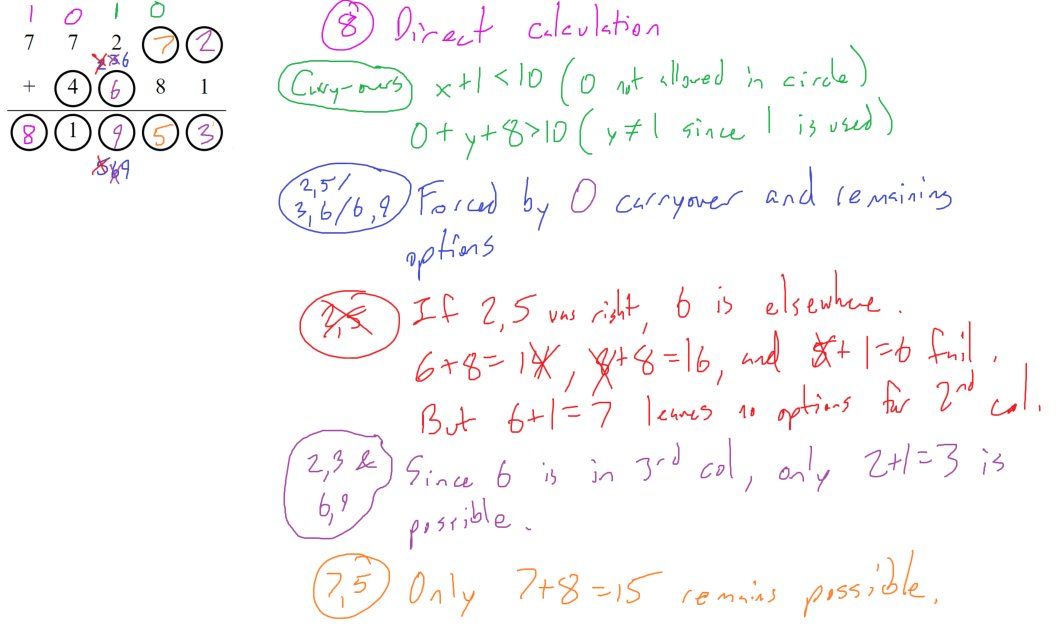 1 0 1 0
7 7 2 7 2
2 3 6
+ 4 6 8 1
8 1 9 5 3
5 6 9
8 Direct calculation
Carry-overs x+1<10 (0 not allowed in circle)
0+y+8>10 (y≠1 since 1 is used)
2,5/
3,6/6,9 Forced by 0 carryover and remaining
options
2,5 If 2,5 was right, 6 is elsewhere.
6+8=14, 8+8=16, and 5+1=6 fail.
But 6+1=7 leaves no options for 2nd col.
2,3 &
6,9 Since 6 is in 3rd col, only 2+1=3 is
possible.
7,5 Only 7+8=15 remains possible.